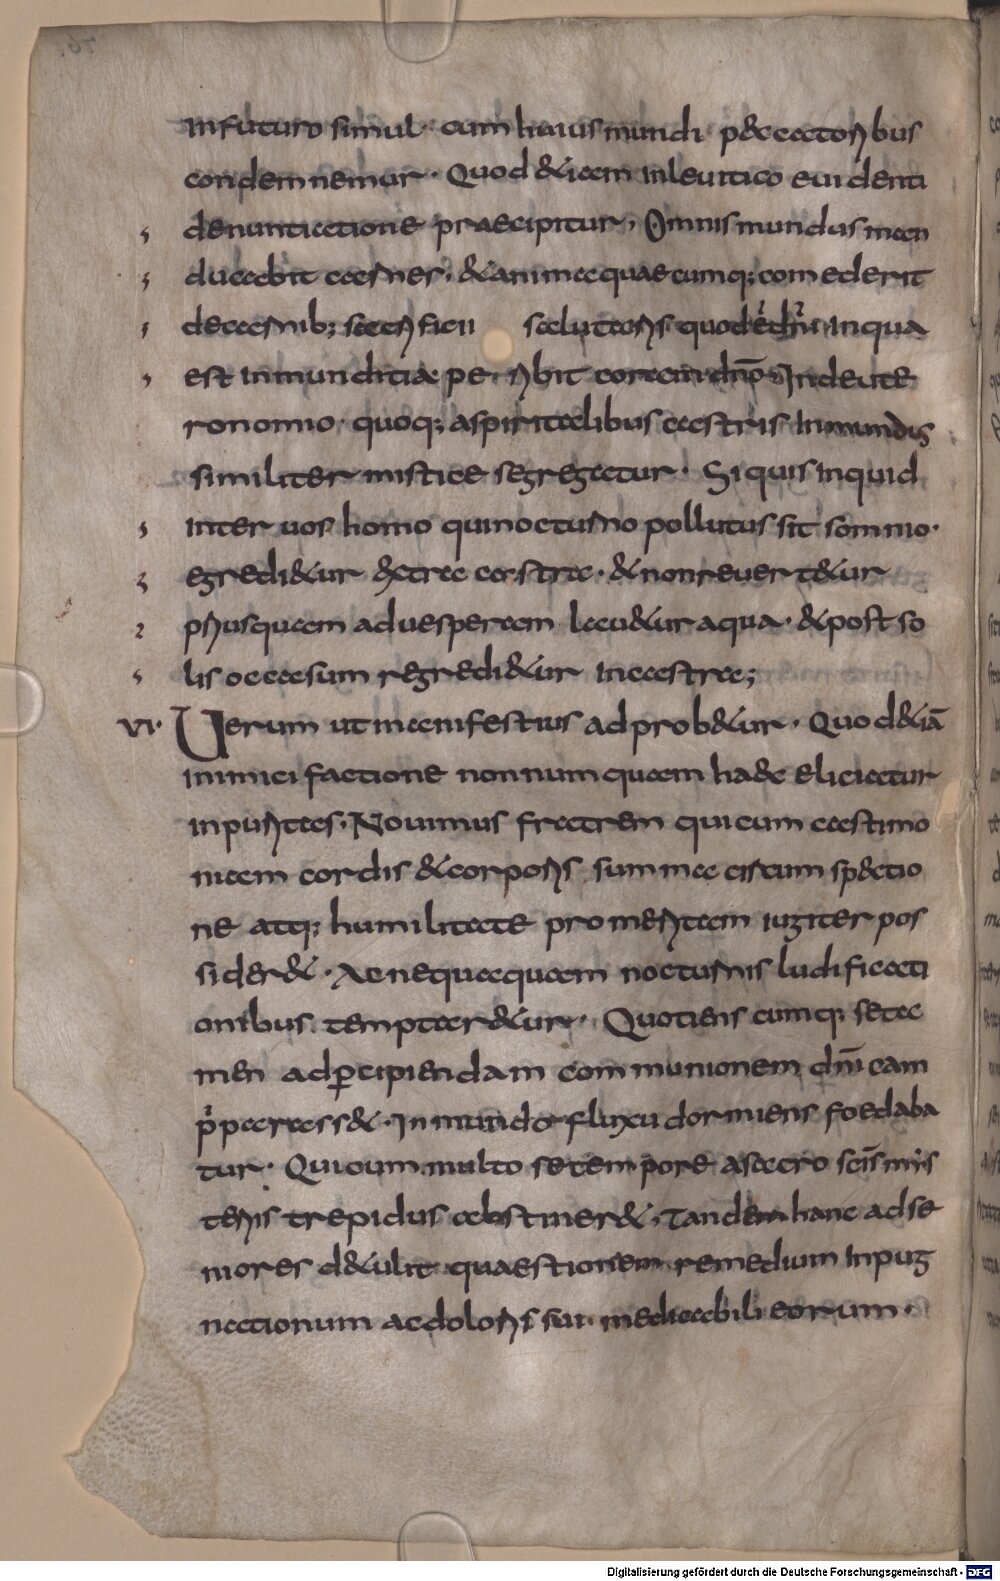 in futuro simul · cum huius mundi p&catoribus
condemnemur · Quod &iam inleuitico euidenti
denuntiatione praecipitur, Omnis mundus man
ducabit carnes · & anima quaecumq; comederit
decarnib; sacrificii salutaris quod ẽ dñi in qua
est inmunditia peribit coram dnō Indeute
ronomio · quoq; aspiritalibus castris Inmundis
similiter mistice segregatur · Si quis inquid
inter uos homo quinocturno pollutus sit somnio ·
egredi&ur extra castra · & nonreuert&ur
priusquam aduesperam lau&ur aqua · & post so
lis occasum regredi&ur in castra;
VI · Uerum ut manifestius adprob&ur · Quod &iā
inimici factione nonnumquam haec eliciatur
inpuritas · Nouimus fratrem qui cum castimo
niam cordis & corporis summa circumsp&ctio
ne atq; humilitate promeritam iugiter pos
sider& · Ac nequaquam nocturnis ludificati
onibus temptar&ur · Quotienscumq; se ta
men adpercipiendam communionem dnīcam
p̄parass& · Inmundo fluxu dormiens foedaba
tur · Qui cum multo se tempore asacro scīs mis
teriis trepidus abstiner&, Tandem hanc adse
niores d&ulit quaestionem remedium Inpug
nationum ac doloris sui medicabili eorum ·
Digitalisierung gefördert durch die Deutsche Forschungsgemeinschaft - DFG